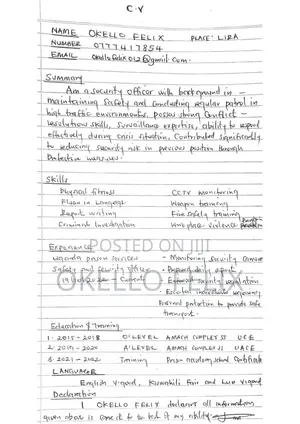 C.V
NAME OKELLO FELIX PLACE: LIRA
NUMBER 0777417854
EMAIL okellofelix012@gmail.com.
Summary
Am a security officer with background in -
maintaining Safety and conducting regular patrol in
high traffic environments, posses strong conflict -
resolution skill, Surveillance expertise, ability to respond
effectively during crisis situation. Contributed significantly
to reducing security risk in previous position through
Protective
Skills
Physical fitness CCTV monitoring
in Language Weapon training
Report writing Fire safety training
Criminal Investigation Work place violence
Experience
Uganda prison services - Monitoring security camera
Safety and security officer - Prepare daily report
current - Enforced security regulation
- Escorted individuals requiring
Personal protection to provide safe
transport.
POSTED ON JIJI
OKELLO FELIX
Education & Training
1. 2015-2018 O'LEVEL AMACH COMPLEX SS UCE
2. 2019-2020 A'LEVEL AMACH COMPLEX SS UACE
3. 2021-2022 Training Prison academy school Certificate
LANGUAGE
English good, Kiswahili Fair and Luo good
Declaration
I OKELLO FELIX declares all information
given above is correct to the best of my ability